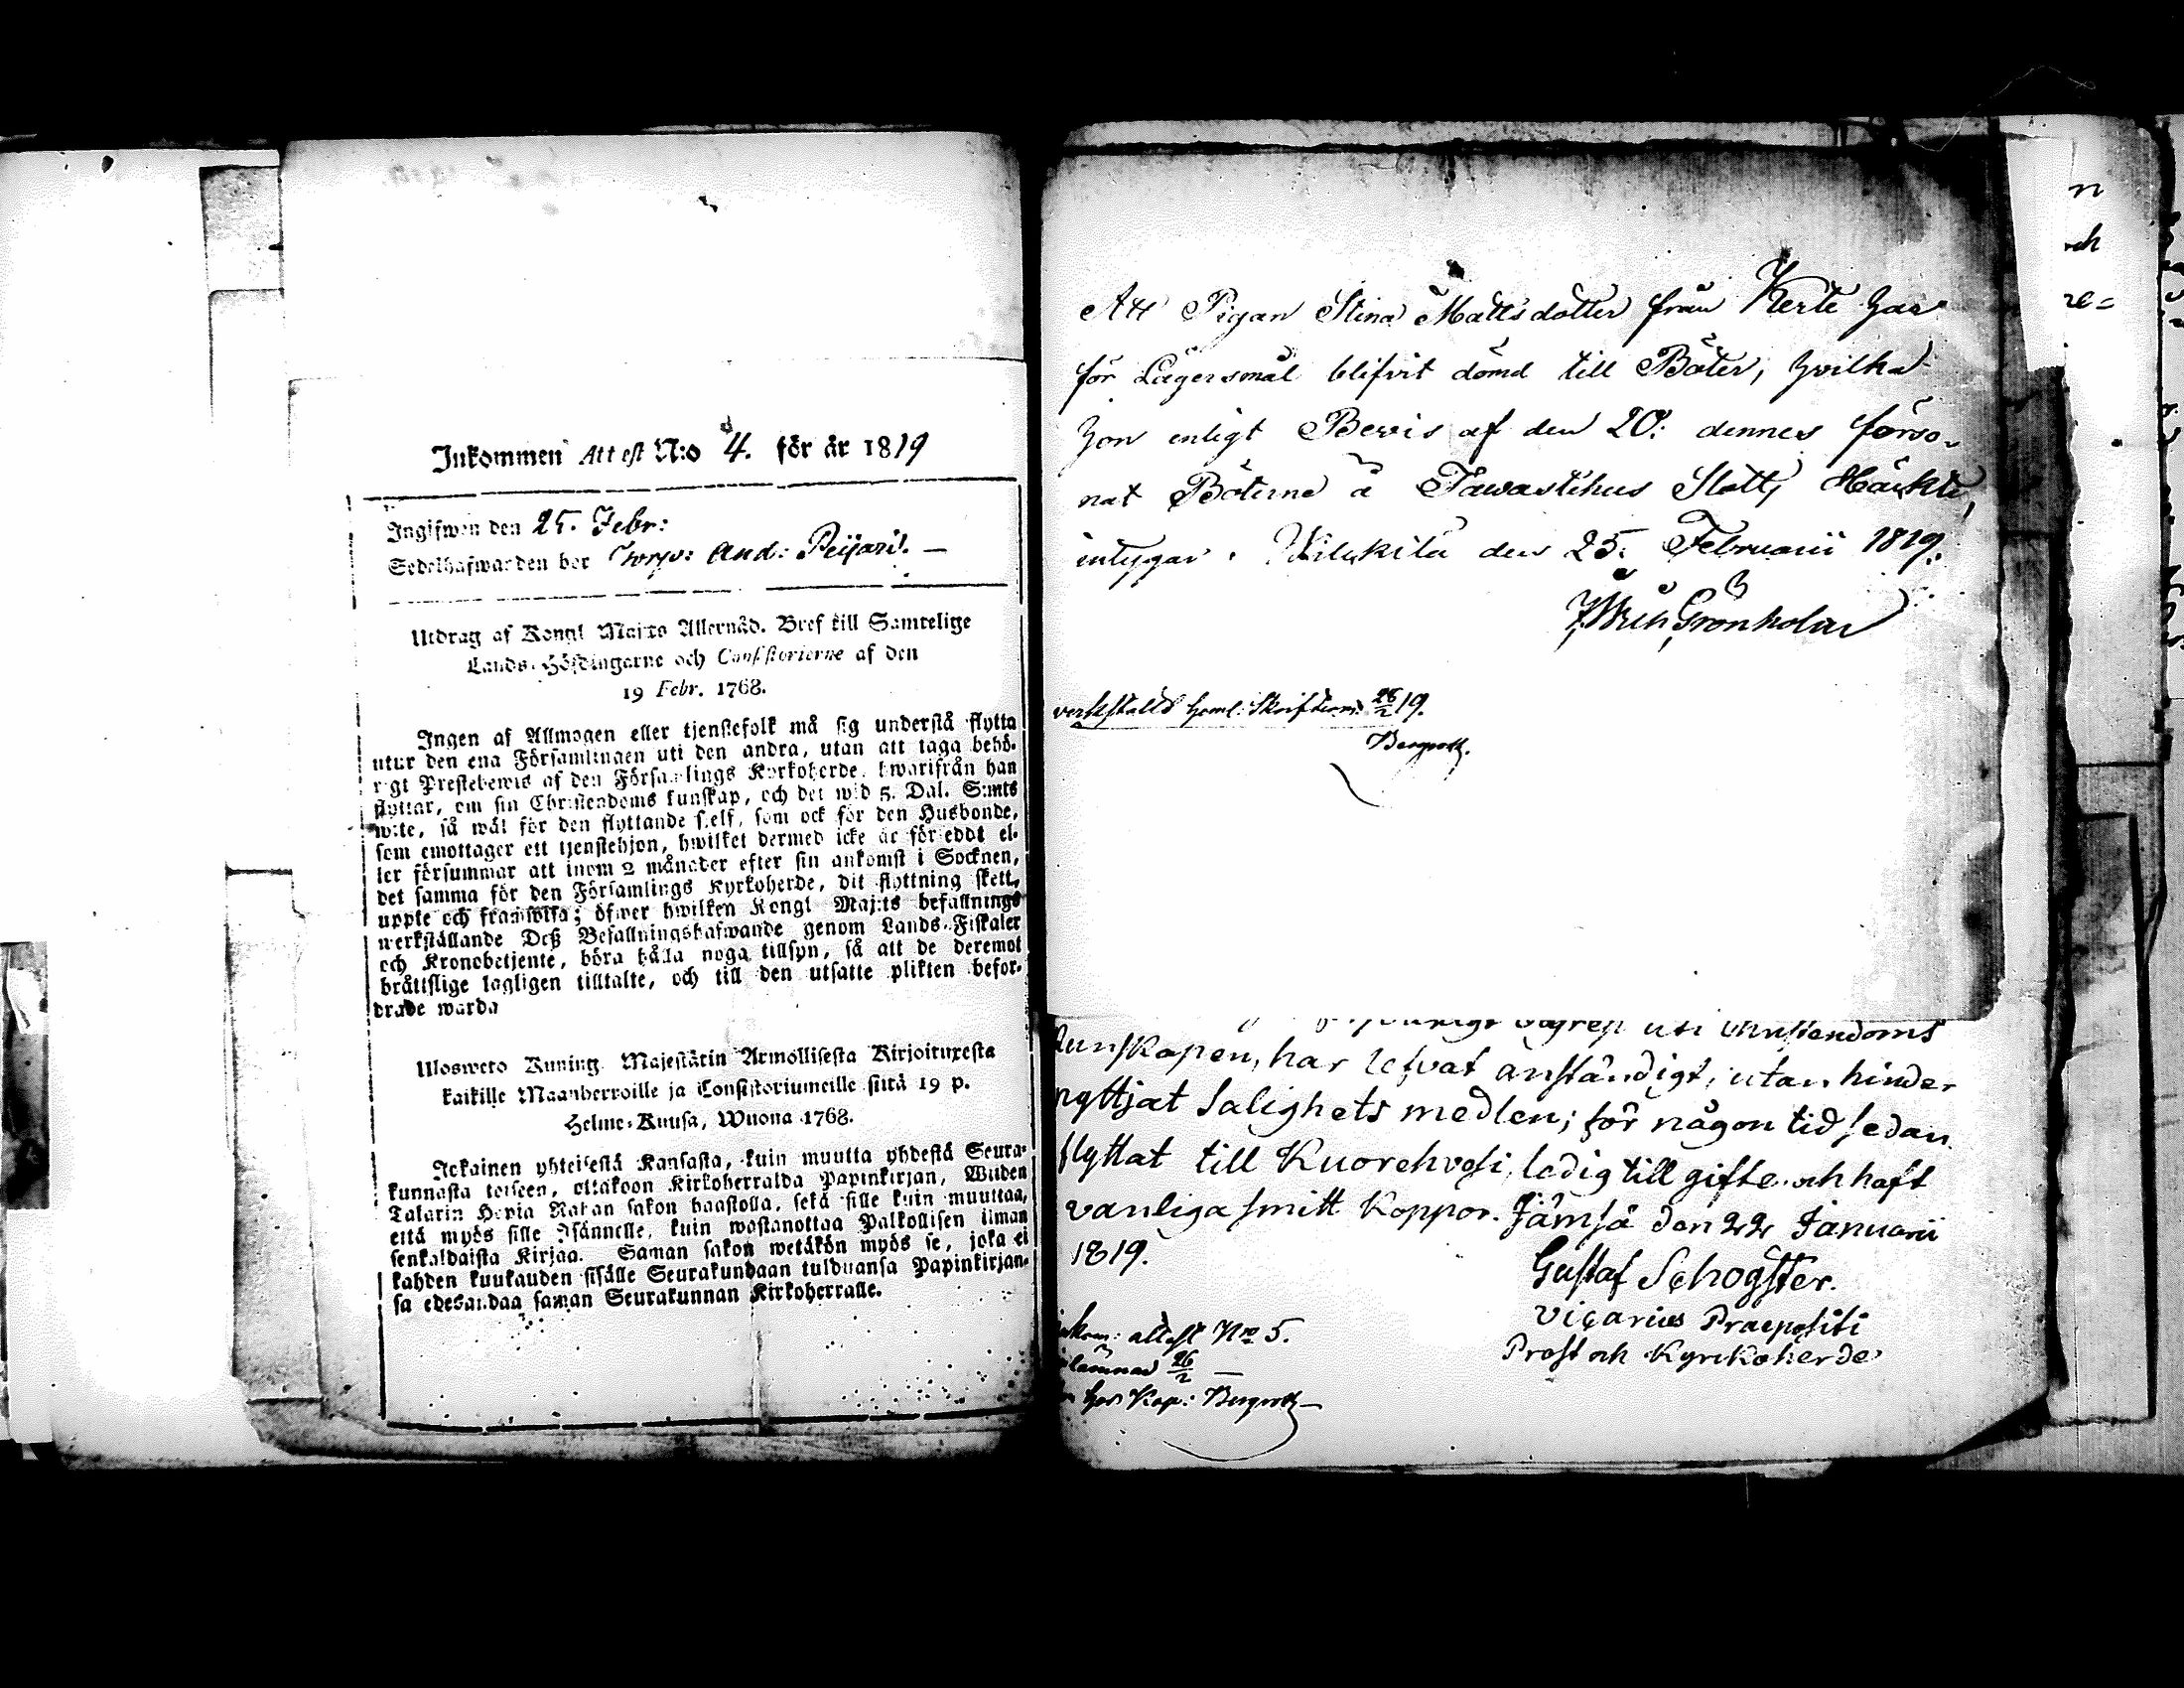 Inkommen Attest N:o 4. för år 1819
Ingifwen den 25. Febr:
Sedelhafwarden bor Torp: And: Peijari. —
Utdrag af Kongl Maj:ts Allernåd. Bref till Samtelige
Lands-Höfdingarne och Consistorierne af den
19 Febr. 1768.
Ingen af Allmogen eller tjenstefolk må sig understå flytta
utur den ena Församlingen uti den andra, utan att taga behö-
rigt Prestebewis af den Församlings Kyrkoherde, hwarifrån han
flyttar, om sin Christendoms kunskap, och det wid 5. Dal. S:mts
wite, så wäl för den flyttande sielf, som ock för den Husbonde,
som emottager ett tjenstehjon, hwilket dermed icke är försedt el-
ler försummar att inom 2 månader efter sin ankomst i Socknen,
det samma för den Församlings Kyrkoherde, dit flyttning skett,
uppte och framwisa; öfwer hwilken Kongl Maj:ts befallnings
werkställande Deß Befallningshafwande genom Lands-Fiskaler
och Kronobetjente, böra hålla noga tillsyn, så att de deremot
bråttslige lagligen tilltalte, och till den utsatte plikten befor-
drade warda
Ulosweto Kuning. Majestätin Armollisesta Kirjoituxesta
kaikille Maanherroille ja Consistoriumeille siitä 19 p.
Helme-Kuusa, Wuona 1768.
Jokainen yhteisestä Kansasta, kuin muutta yhdestä Seura-
kunnasta toiseen, ottakoon Kirkoherralda Papinkirjan, Wiiden
Talarin Hopia Rahan sakon haastolla, sekä sille kuin muuttaa,
että myös sille Isännelle, kuin wastanottaa Palkollisen ilman
senkaldaista Kirjaa. Saman sakon wetäkön myös se, joka ei
kahden kuukauden sisälle Seurakundaan tulduansa Papinkirjan-
sa edesandaa saman Seurakunnan Kirkoherralle.
Att Pigan Stina Mattsdotter från Kerte har
för Lägersmål blifvit dömd till Böter, hvilka
hon enligt Bevis af den 20: dennes förso-
nat Böterne å Tawastehus Slotts Häckte,
intygar. Wilckila den 25. Februarii 1819.
Grönholm
verkställd haml: Skriftenom 28/2 19.
Bergroth.
kunskapen, har lefvat anständigt, utan hinder
nyttjat Salighets medlen; för någon tid sedan
flyttat till Kuorehvesi, ledig till gifte och haft
vanliga smitt Koppor. Jämsä den 22 Januarii
1819.
Gustaf Schogster.
Vicarius Praepositi
Prost och Kyrckoherde
Inkom: attest Nro 5.
inlämnad 26/2 —
hos Kap: Bergroth —